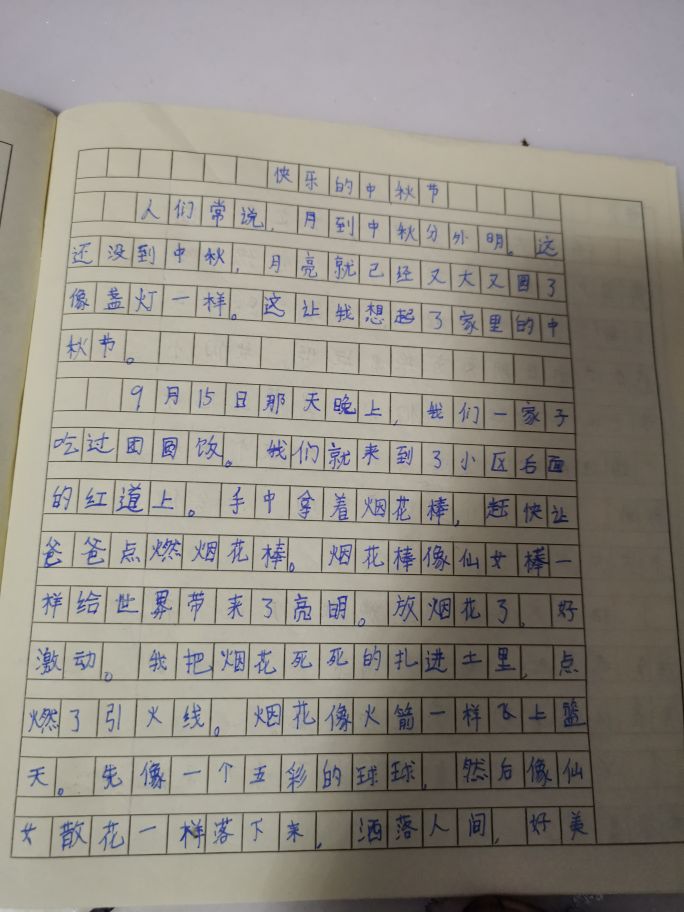 快乐的中秋节
人们常说，月到中秋分外明。这
还没到中秋，月亮就已经又大又圆了
像盏灯一样。这让我想起了家里的中
秋节。
9月15日那天晚上，我们一家子
吃过团圆饭。我们就来到了小区后面
的红道上。手中拿着烟花棒，赶快让
爸爸点燃烟花棒。烟花棒像仙女棒一
样给世界带来了亮明。放烟花了，好
激动。我把烟花死死的扎进土里，点
燃了引火线。烟花像火箭一样飞上蓝
天。先像一个五彩的球球，然后像仙
女散花一样落下来，洒落人间，好美